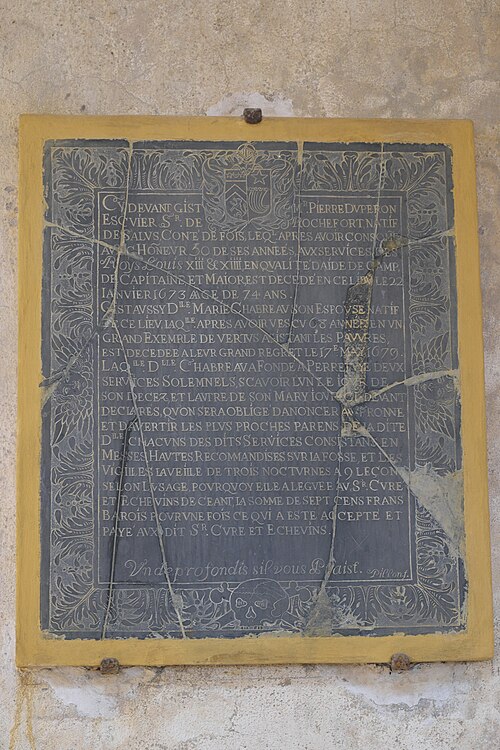 CY DEVANT GIST Mr. PIERRE DVPERON
ESQVIER Sr. DE ROCHEFORT NATIF
DE SALVS CONTE DE FOIS, LEQl. APRES AVOIR CONSOM
AVEC HONEVR 30 DE SES ANNEES AVX SERVICES DES
Roys Louis XIII & XIIII EN QVALITE D'AIDE DE CAMP
DE CAPITAINE ET MAIOR EST DECEDE EN CE LIEV LE 22
IANVIER 1673 AAGE DE 74 ANS.
GIST AVSSY Dlle MARIE CHABREAV SON ESPOVSE NATIF
DE CE LIEV LAQlle APRES AVOIR VESCV 63 ANNEES EN VN
GRAND EXEMPLE DE VERTVS ASSISTANT LES PAVVRES,
EST DECEDEE A LEVR GRAND REGRET LE 17e MAY 1679.
LAQlle Dlle CHABREAV A FONDE A PERPETVITE DEVX
SERVICES SOLEMNELS, SCAVOIR L'VN LE IOVR DE
SON DECEZ, ET L'AVTRE DE SON MARY IOVR CY DEVANT
DECLARES, QV'ON SERA OBLIGE D'ANONCER AV PRONNE
ET D'AVERTIR LES PLVS PROCHES PARENS DE LA DITE
Dlle CHACVNS DES DITS SERVICES CONSISTANS EN
MESSES HAVTES RECOMMANDISES SVR LA FOSSE ET LES
VIGILES LA VEILLE DE TROIS NOCTVRNES A 9 LECONS
SELON L'VSAGE, POVRQVOY ELLE A LEGVE AV Sr. CVRE
ET ECHEVINS DE CEANT LA SOMME DE SEPT CENS FRANS
BAROIS POVR VNE FOIS CE QVI A ESTE ACCEPTE ET
PAYE AVX DIT Sr. CVRE ET ECHEVINS.
Vn de profondis s'il vous Plaist.